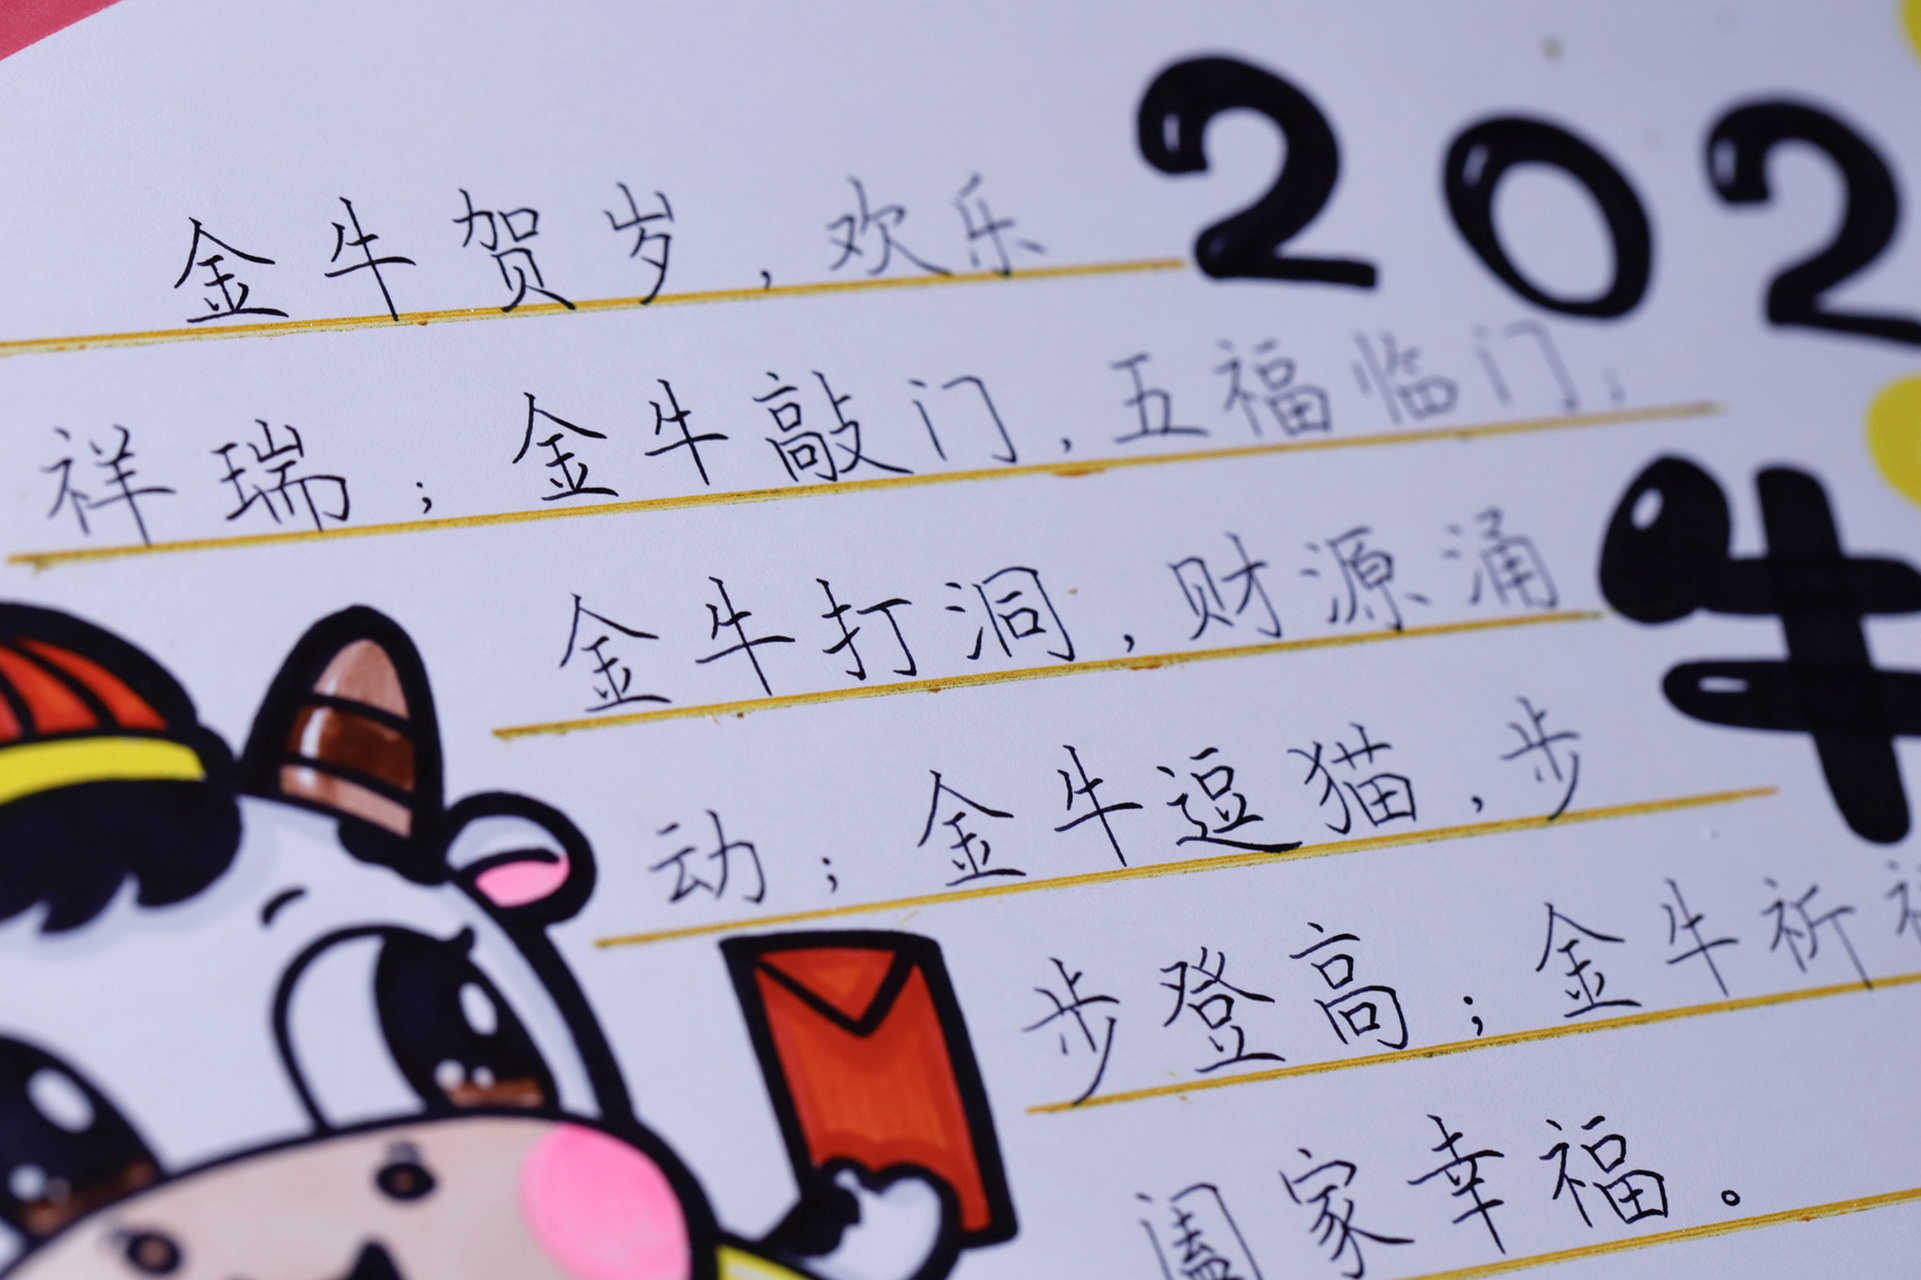 金牛贺岁，欢乐
202
祥瑞；金牛敲门，五福临门；
牛
金牛打洞，财源涌
动；金牛逗猫，步
步登高；金牛祈
阖家幸福。